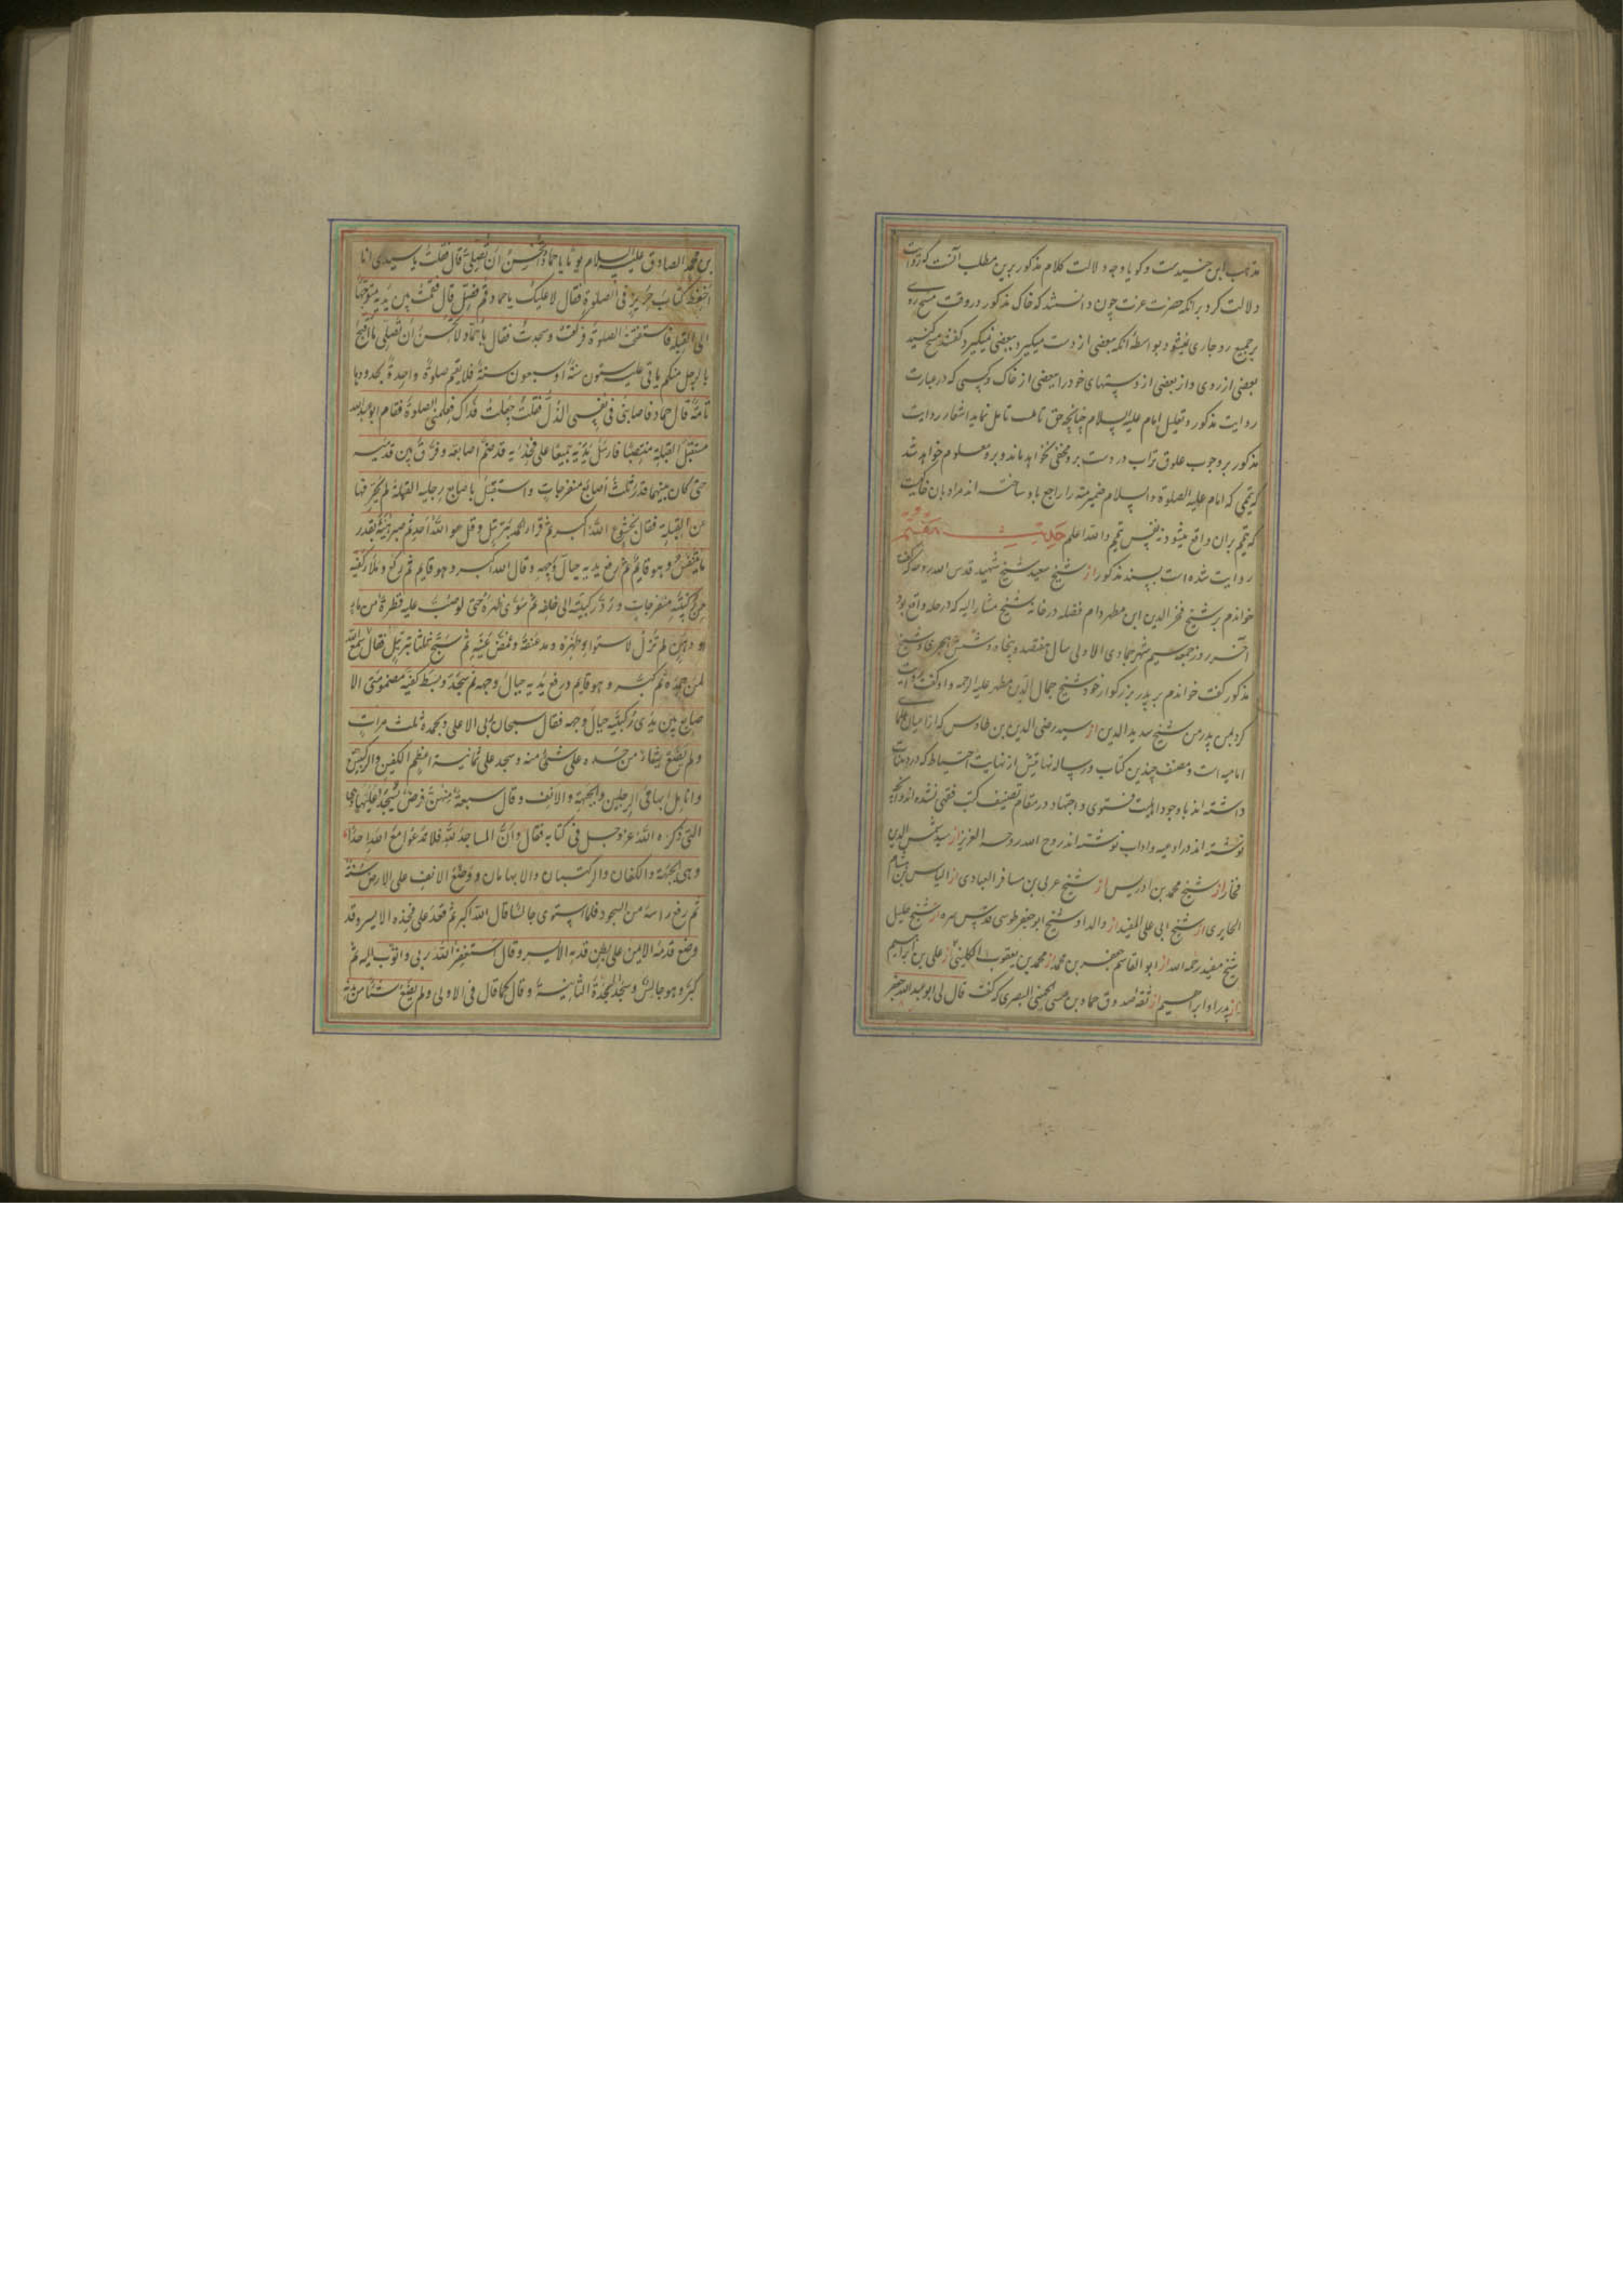 مذهب ابن جنیدست و گویا وجه دلالت کلام مذکور برین مطلب آنست که روایت
دلالت کرد بر آنکه حضرت عزت چون دانستند که خاک مذکور در وقت مسح روی
بر جمیع رو جاری نمیشود بواسطه آنکه بعضی از دست میگیرد و بعضی نمیگیرد گفتند مسح کنید
بعضی از روی و از بعضی از دستهای خود را ببعضی از خاک و کسی که در عبارت
روایت مذکور و تعلیل امام علیه السلام چنانچه حق تاملست تامل نماید اشعار روایت
مذکور بر وجوب علوق تراب در دست برو مخفی نخواهد ماند و برو معلوم خواهد شد
که تیممی که امام علیه الصلوة والسلام ضمیر منه را راجع باو ساخته اند مراد بان خاکیست
که تیمم بران واقع میشود نه نفس تیمم والله اعلم حدیث هفتم
روایت شده است بسند مذکور از شیخ سعید شیخ شهید قدس الله روحه که گفت
خواندم بر شیخ فخر الدین ابن مطهر دام فضله در خانه شیخ مشار الیه که در حله واقع بود
آخر روز جمعه سیم شهر جمادی الاولی سال هفتصد و پنجاه و شش هجری و شیخ
مذکور گفت خواندم بر پدر بزرگوار خود شیخ جمال الدین مطهر علیه الرحمه و او گفت روایت
کرد بمن پدر من شیخ سدید الدین از سید رضی الدین بن طاوس که از اعیان علمای
امامیه است و مصنف چندین کتاب و رساله نهایتش از نهایت احتیاط که در دیانت
داشته اند باوجود اهلیت فتوی و اجتهاد در مقام تصنیف کتب فقهی نشده اند و آنچه
نوشته اند در ادعیه و اداب نوشته اند روح الله روحه العزیز از سید شمس الدین
فخار از شیخ محمد بن ادریس از شیخ عربی بن مسافر العبادی از الیاس بن هشام
الحایری از شیخ ابی علی المفید از والد او شیخ ابو جعفر طوسی قدس سره از شیخ جلیل
شیخ مفید رحمه الله از ابو القاسم جعفر بن محمد از محمد بن یعقوب الکلینی از علی بن ابراهیم
از پدر او ابراهیم از ثقه صدوق حماد بن عیسی الجهنی البصری که گفت قال لی ابو عبد الله جعفر
بن محمد الصادق علیه السلام یوما یا حماد اتحسن ان تصلی قال فقلت یا سیدی انا
احفظ کتاب حریز فی الصلوة فقال لا علیک یا حماد قم فصل قال فقمت بین یدیه متوجها
الی القبلة فاستفتحت الصلوة فرکعت وسجدت فقال یا حماد لا تحسن ان تصلی ما اقبح
بالرجل منکم یاتی علیه ستون سنة او سبعون سنة فلا یقیم صلوة واحدة بحدودها
تامة قال حماد فاصابنی فی نفسی الذل فقلت جعلت فداک فعلمنی الصلوة فقام ابو عبد الله
مستقبل القبلة منتصبا فارسل یدیه جمیعا علی فخذیه قد ضم اصابعه وفرق بین قدمیه
حتی کان بینهما قدر ثلث اصابع منفرجات واستقبل باصابع رجلیه القبلة لم یحرفها
عن القبلة فقال بخشوع الله اکبر ثم قرا الحمد بترتیل وقل هو الله احد ثم صبر هنیئة بقدر
ما یتنفس وهو قایم ثم رفع یدیه حیال وجهه وقال الله اکبر وهو قایم ثم رکع وملا کفیه
من رکبتیه منفرجات ورد رکبتیه الی خلفه ثم سوی ظهره حتی لو صب علیه قطرة من ماء
او دهن لم تزل لاستواء ظهره ومد عنقه وغمض عینیه ثم سبح ثلثا بترتیل فقال سمع الله
لمن حمده ثم کبر وهو قایم ورفع یدیه حیال وجهه ثم سجد وبسط کفیه مضمومتی الا
صابع بین یدی رکبتیه حیال وجهه فقال سبحان ربی الاعلی وبحمده ثلث مرات
ولم یضع شیئا من جسده علی شیء منه وسجد علی ثمانیة اعظم الکفین والرکبتین
وانامل ابهامی الرجلین والجبهة والانف وقال سبعة منهن فرض یسجد علیها وهی
التی ذکره الله عز وجل فی کتابه فقال وان المساجد لله فلا تدعوا مع الله احدا
وهی الجبهة والکفان والرکبتان والابهامان ووضع الانف علی الارض سنة
ثم رفع راسه من السجود فلما استوی جالسا قال الله اکبر ثم قعد علی فخذه الایسر وقد
وضع قدمه الایمن علی بطن قدمه الایسر وقال استغفر الله ربی واتوب الیه ثم
کبر وهو جالس وسجد السجدة الثانیة وقال کما قال فی الاولی ولم یضع شیئا من بدنه